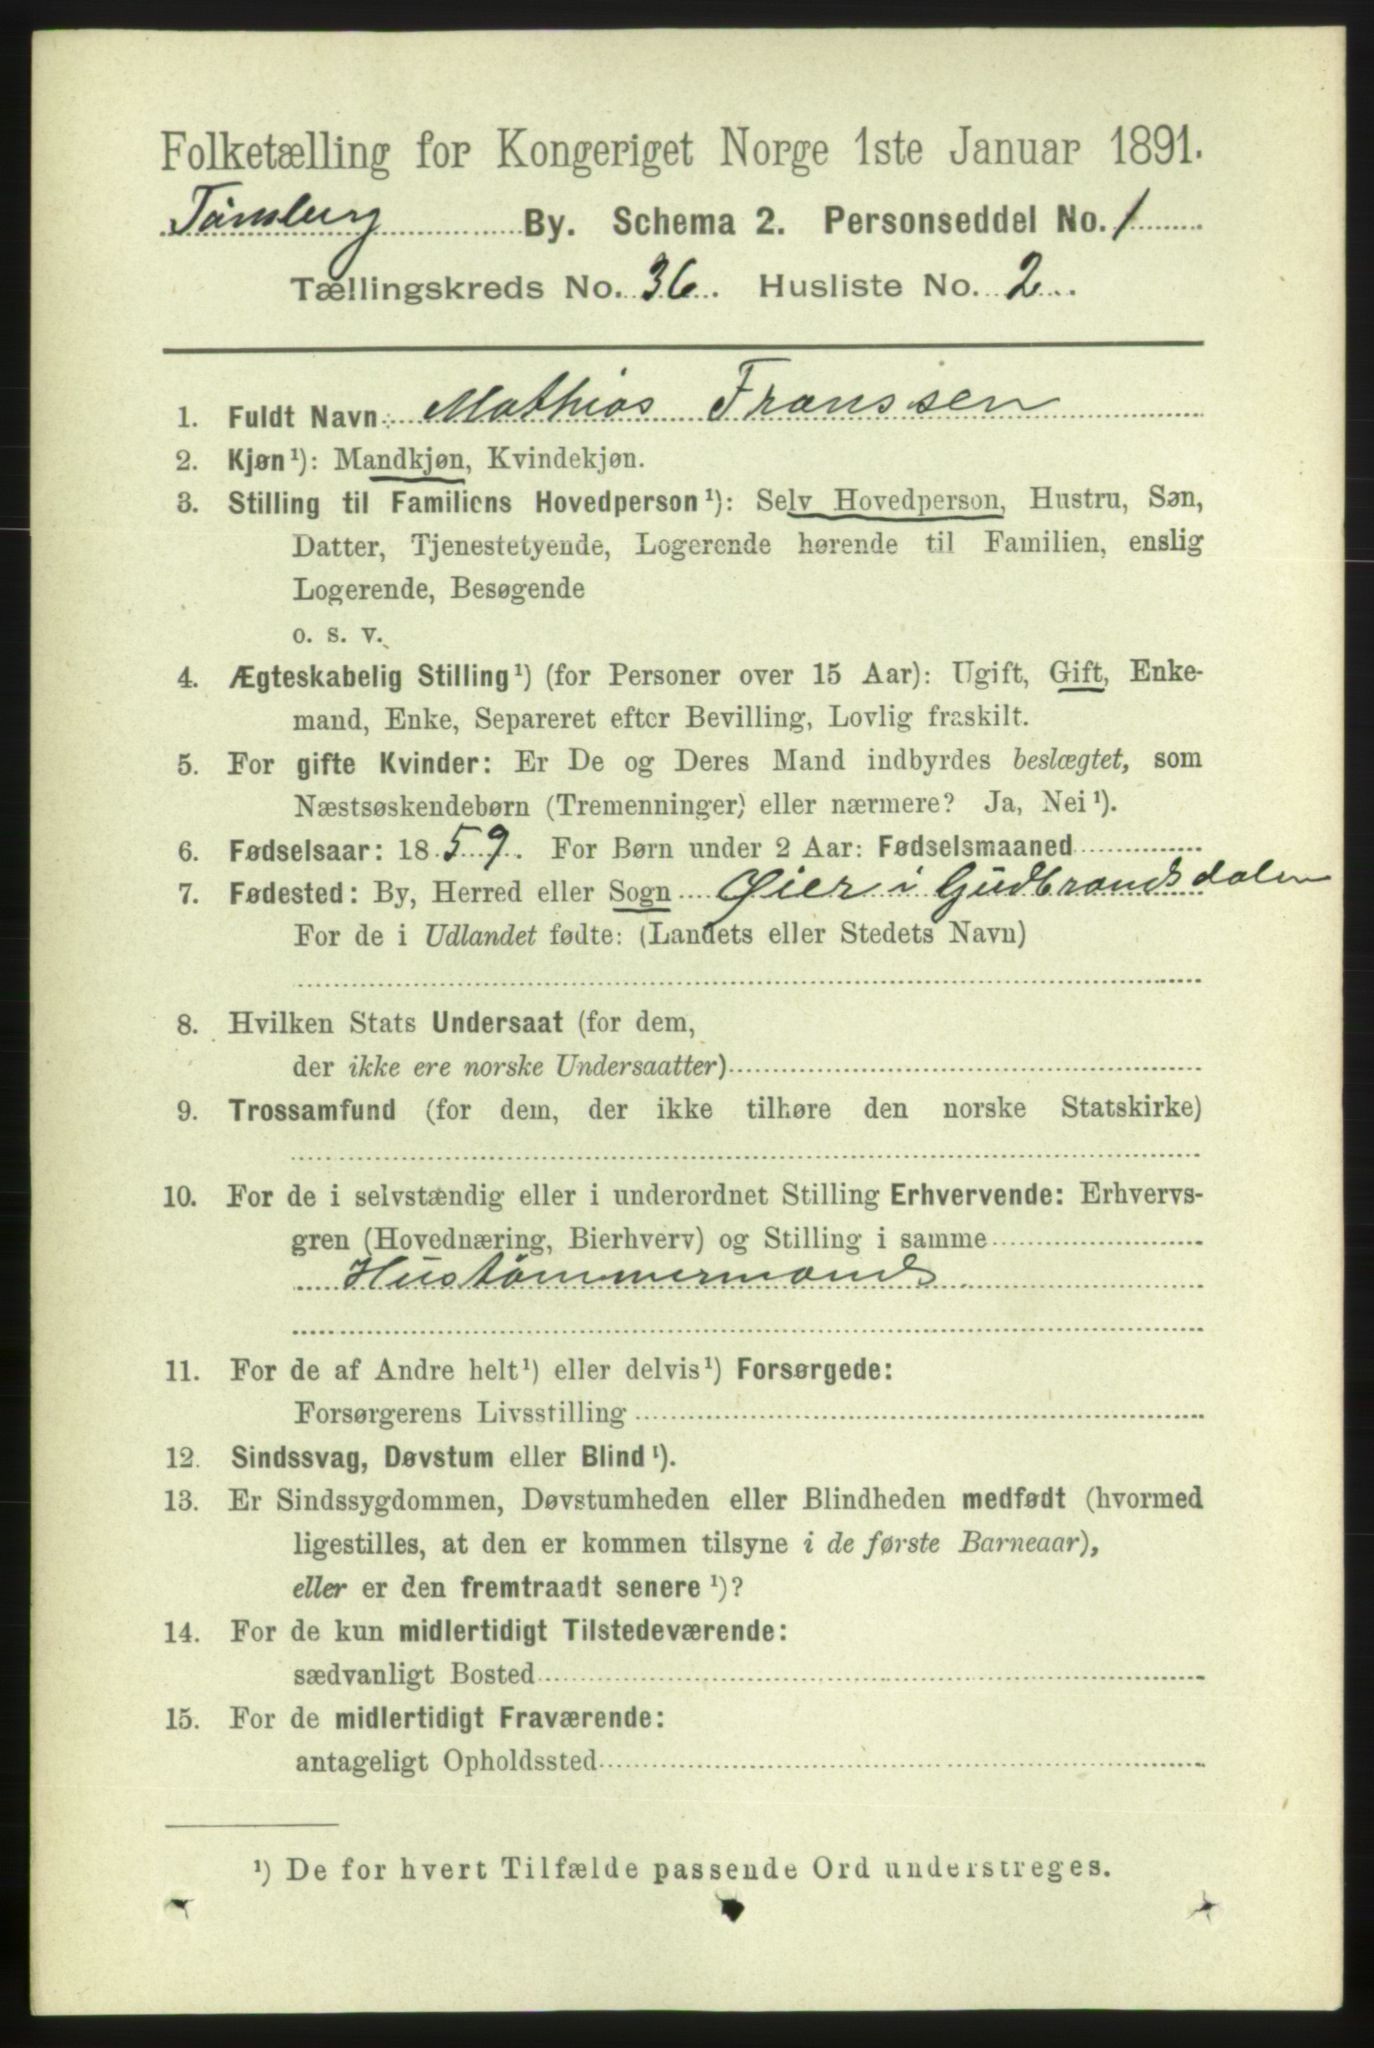 Folketælling for Kongeriget Norge 1ste Januar 1891.
Tønsberg By. Schema 2. Personseddel No. 1
Tællingskreds No. 36. Husliste No. 2.
1. Fuldt Navn: Mathias Franssen
2. Kjøn¹): Mandkjøn, Kvindekjøn.
3. Stilling til Familiens Hovedperson¹): Selv Hovedperson, Hustru, Søn,
Datter, Tjenestetyende, Logerende hørende til Familien, enslig
Logerende, Besøgende
o. s. v.
4. Ægteskabelig Stilling¹) (for Personer over 15 Aar): Ugift, Gift, Enke-
mand, Enke, Separeret efter Bevilling, Lovlig fraskilt.
5. For gifte Kvinder: Er De og Deres Mand indbyrdes beslægtet, som
Næstsøskendebørn (Tremenninger) eller nærmere? Ja, Nei¹).
6. Fødselsaar: 1859. For Børn under 2 Aar: Fødselsmaaned
7. Fødested: By, Herred eller Sogn Øier i Gudbrandsdalen
For de i Udlandet fødte: (Landets eller Stedets Navn)
8. Hvilken Stats Undersaat (for dem,
der ikke ere norske Undersaatter)
9. Trossamfund (for dem, der ikke tilhøre den norske Statskirke)
10. For de i selvstændig eller i underordnet Stilling Erhvervende: Erhvervs-
gren (Hovednæring, Bierhverv) og Stilling i samme
Hustømmermand
11. For de af Andre helt¹) eller delvis¹) Forsørgede:
Forsørgerens Livsstilling
12. Sindssvag, Døvstum eller Blind¹).
13. Er Sindssygdommen, Døvstumheden eller Blindheden medfødt (hvormed
ligestilles, at den er kommen tilsyne i de første Barneaar),
eller er den fremtraadt senere¹)?
14. For de kun midlertidigt Tilstedeværende:
sædvanligt Bosted
15. For de midlertidigt Fraværende:
antageligt Opholdssted
¹) De for hvert Tilfælde passende Ord understreges.